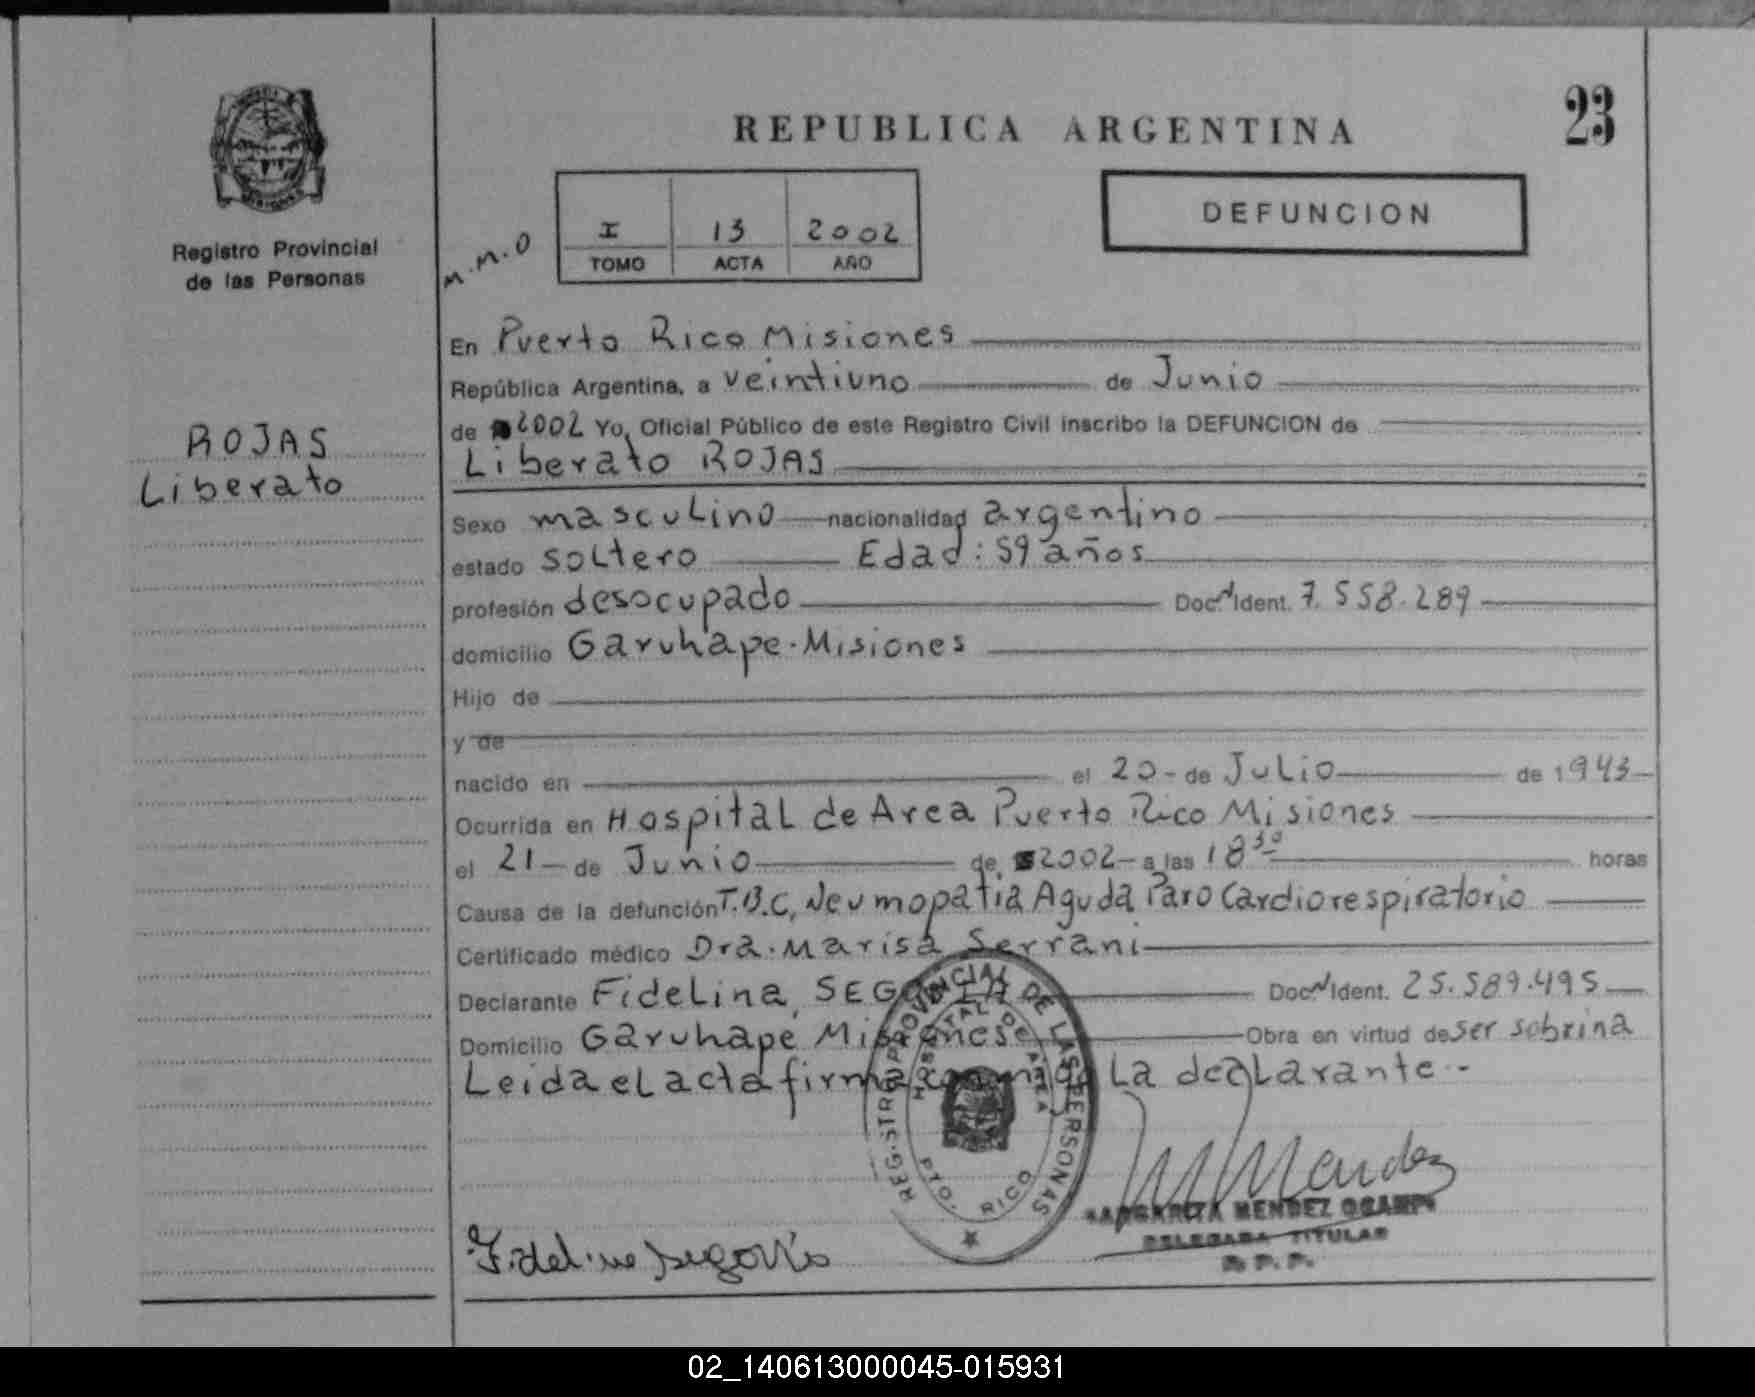 REPUBLICA ARGENTINA
23
Registro Provincial
de las Personas
ROJAS
Liberato
M.M.O
I 13 2002
TOMO ACTA AÑO
DEFUNCION
En Puerto Rico Misiones
República Argentina, a veintiuno de Junio
de 2002 Yo, Oficial Público de este Registro Civil inscribo la DEFUNCION de
Liberato ROJAS
Sexo masculino nacionalidad argentino
estado soltero Edad: 59 años
profesión desocupado Doc. N Ident. 7.558.289
domicilio Garuhape-Misiones
Hijo de
y de
nacido en el 20 - de Julio de 1943
Ocurrida en Hospital de Area Puerto Rico Misiones
el 21 - de Junio de 2002 - a las 18 30 horas
Causa de la defunción T.B.C, Neumopatia Aguda Paro Cardiorespiratorio
Certificado médico Dra. Marisa Serrani
Declarante Fidelina, SEGOVIA Doc. N Ident. 25.589.495
Domicilio Garuhape Misiones Obra en virtud de ser sobrina
Leida el acta firma conmigo La declarante.-
REG-STRO PROVINCIAL DE LAS PERSONAS
HOSPITAL DE AREA
PTO. RICO
Fideline Segovia
M Mendez
MARGARITA MENDEZ OCAMPO
DELEGADA TITULAR
R.P.P.
02_140613000045-015931